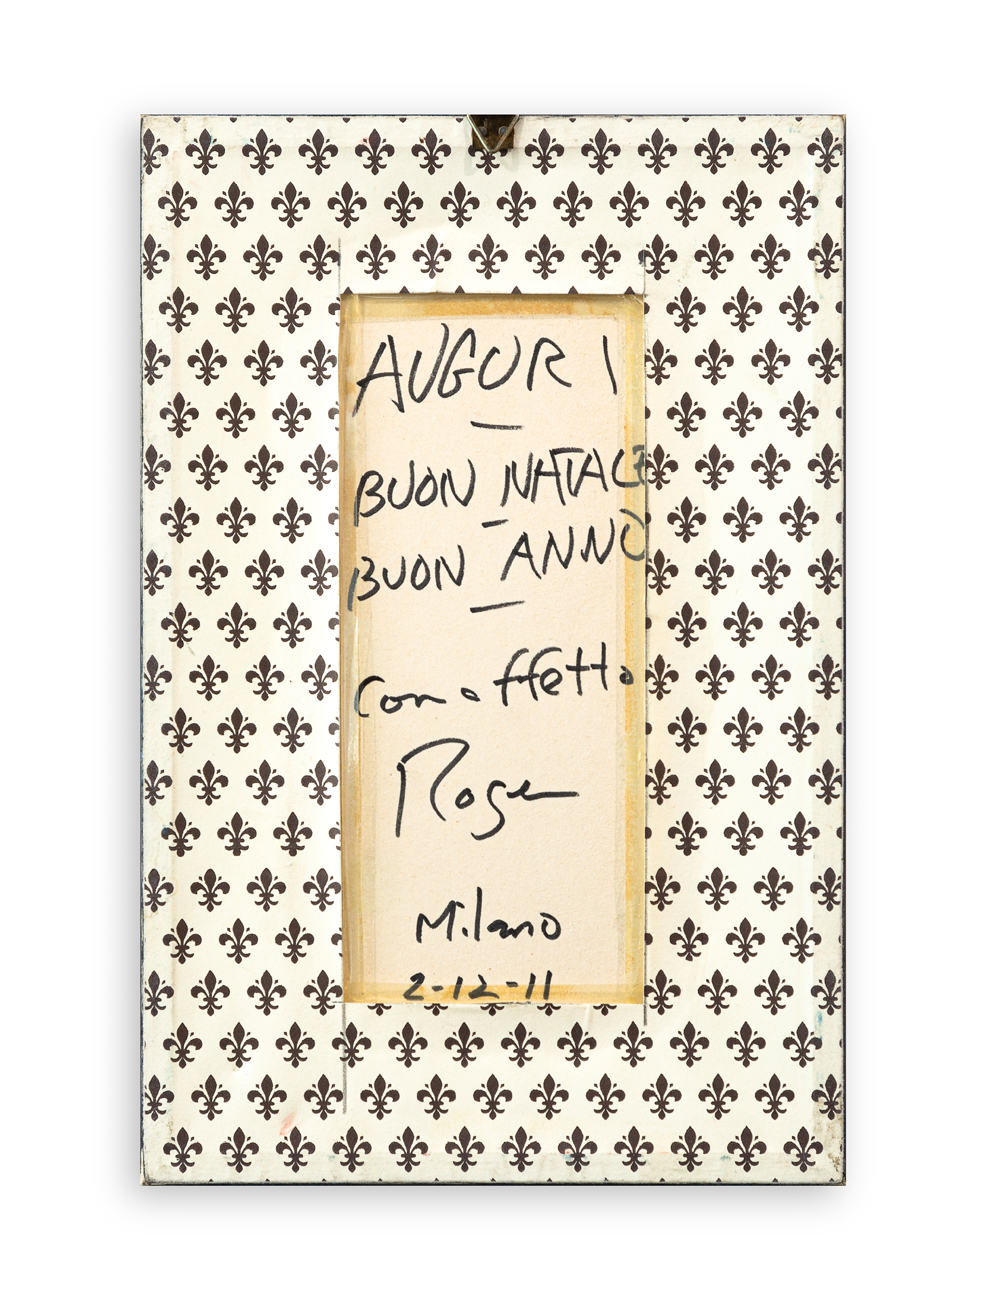 AUGURI
—
BUON NATALE
-
BUON ANNO
—
con affetto
Roger
Milano
2-12-11